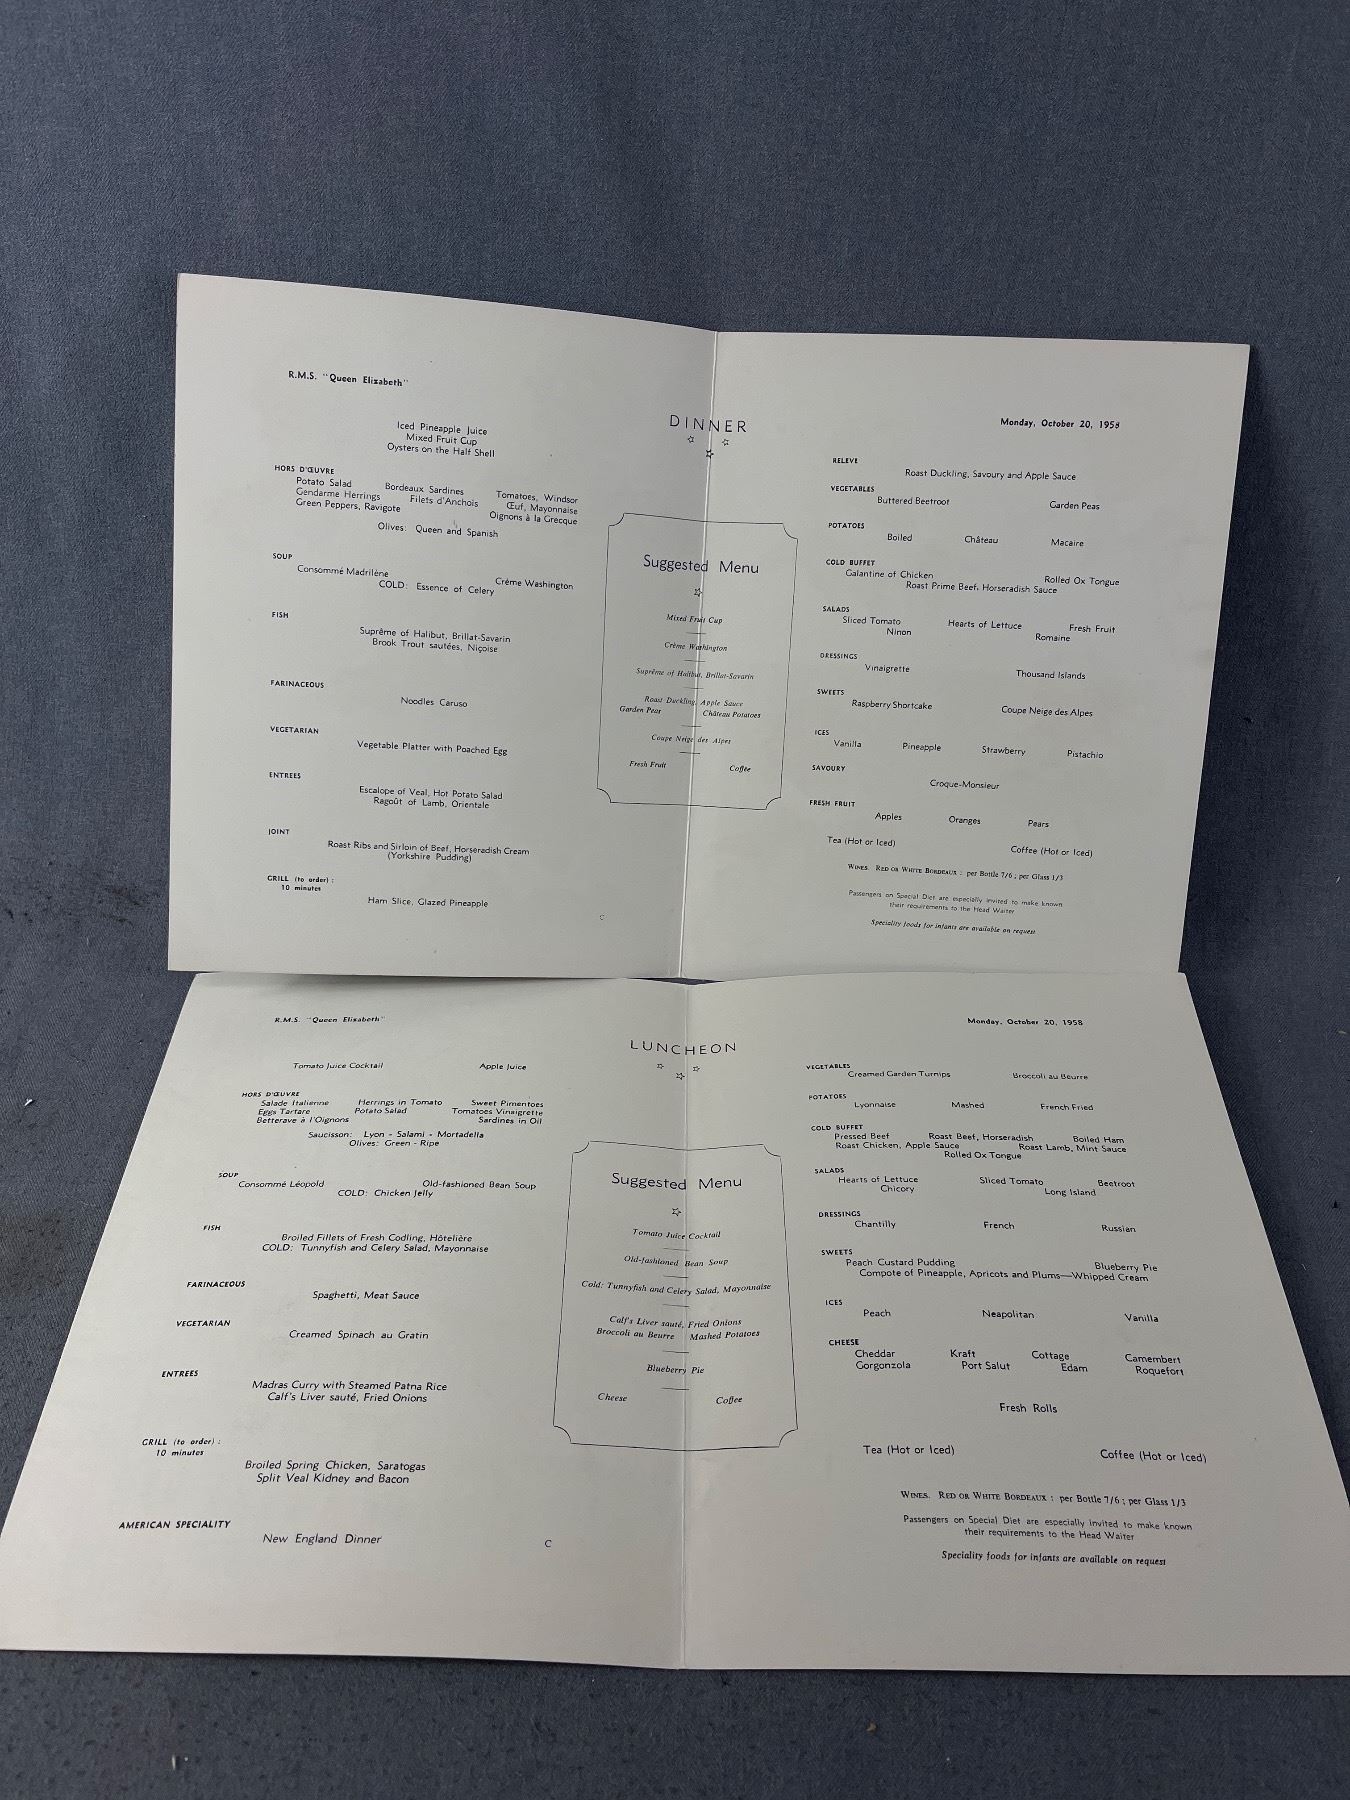 R.M.S. "Queen Elizabeth"
Iced Pineapple Juice
Mixed Fruit Cup
Oysters on the Half Shell
HORS D'ŒUVRE
Potato Salad Bordeaux Sardines Tomatoes, Windsor
Gendarme Herrings Filets d'Anchois Œuf, Mayonnaise
Green Peppers, Ravigote Oignons à la Grecque
Olives: Queen and Spanish
SOUP
Consommé Madrilène Crème Washington
COLD: Essence of Celery
FISH
Suprême of Halibut, Brillat-Savarin
Brook Trout sautées, Niçoise
FARINACEOUS
Noodles Caruso
VEGETARIAN
Vegetable Platter with Poached Egg
ENTREES
Escalope of Veal, Hot Potato Salad
Ragoût of Lamb, Orientale
JOINT
Roast Ribs and Sirloin of Beef, Horseradish Cream
(Yorkshire Pudding)
GRILL (to order) :
10 minutes
Ham Slice, Glazed Pineapple
C
DINNER
Suggested Menu
Mixed Fruit Cup
Crème Washington
Suprême of Halibut, Brillat-Savarin
Roast Duckling, Apple Sauce
Garden Peas Château Potatoes
Coupe Neige des Alpes
Fresh Fruit Coffee
Monday, October 20, 1958
RELEVE
Roast Duckling, Savoury and Apple Sauce
VEGETABLES
Buttered Beetroot Garden Peas
POTATOES
Boiled Château Macaire
COLD BUFFET
Galantine of Chicken Rolled Ox Tongue
Roast Prime Beef, Horseradish Sauce
SALADS
Sliced Tomato Hearts of Lettuce Fresh Fruit
Ninon Romaine
DRESSINGS
Vinaigrette Thousand Islands
SWEETS
Raspberry Shortcake Coupe Neige des Alpes
ICES
Vanilla Pineapple Strawberry Pistachio
SAVOURY
Croque-Monsieur
FRESH FRUIT
Apples Oranges Pears
Tea (Hot or Iced) Coffee (Hot or Iced)
WINES. RED OR WHITE BORDEAUX : per Bottle 7/6 ; per Glass 1/3
Passengers on Special Diet are especially invited to make known
their requirements to the Head Waiter
Speciality foods for infants are available on request
R.M.S. "Queen Elizabeth"
Tomato Juice Cocktail Apple Juice
HORS D'ŒUVRE
Salade Italienne Herrings in Tomato Sweet Pimentoes
Eggs Tartare Potato Salad Tomatoes Vinaigrette
Betterave à l'Oignons Sardines in Oil
Saucisson: Lyon - Salami - Mortadella
Olives: Green - Ripe
SOUP
Consommé Léopold Old-fashioned Bean Soup
COLD: Chicken Jelly
FISH
Broiled Fillets of Fresh Codling, Hôtelière
COLD: Tunnyfish and Celery Salad, Mayonnaise
FARINACEOUS
Spaghetti, Meat Sauce
VEGETARIAN
Creamed Spinach au Gratin
ENTREES
Madras Curry with Steamed Patna Rice
Calf's Liver sauté, Fried Onions
GRILL (to order) :
10 minutes
Broiled Spring Chicken, Saratogas
Split Veal Kidney and Bacon
AMERICAN SPECIALITY
New England Dinner
C
LUNCHEON
Suggested Menu
Tomato Juice Cocktail
Old-fashioned Bean Soup
Cold: Tunnyfish and Celery Salad, Mayonnaise
Calf's Liver sauté, Fried Onions
Broccoli au Beurre Mashed Potatoes
Blueberry Pie
Cheese Coffee
Monday, October 20, 1958
VEGETABLES
Creamed Garden Turnips Broccoli au Beurre
POTATOES
Lyonnaise Mashed French Fried
COLD BUFFET
Pressed Beef Roast Beef, Horseradish Boiled Ham
Roast Chicken, Apple Sauce Roast Lamb, Mint Sauce
Rolled Ox Tongue
SALADS
Hearts of Lettuce Sliced Tomato Beetroot
Chicory Long Island
DRESSINGS
Chantilly French Russian
SWEETS
Peach Custard Pudding Blueberry Pie
Compote of Pineapple, Apricots and Plums—Whipped Cream
ICES
Peach Neapolitan Vanilla
CHEESE
Cheddar Kraft Cottage Camembert
Gorgonzola Port Salut Edam Roquefort
Fresh Rolls
Tea (Hot or Iced) Coffee (Hot or Iced)
WINES. RED OR WHITE BORDEAUX : per Bottle 7/6 ; per Glass 1/3
Passengers on Special Diet are especially invited to make known
their requirements to the Head Waiter
Speciality foods for infants are available on request